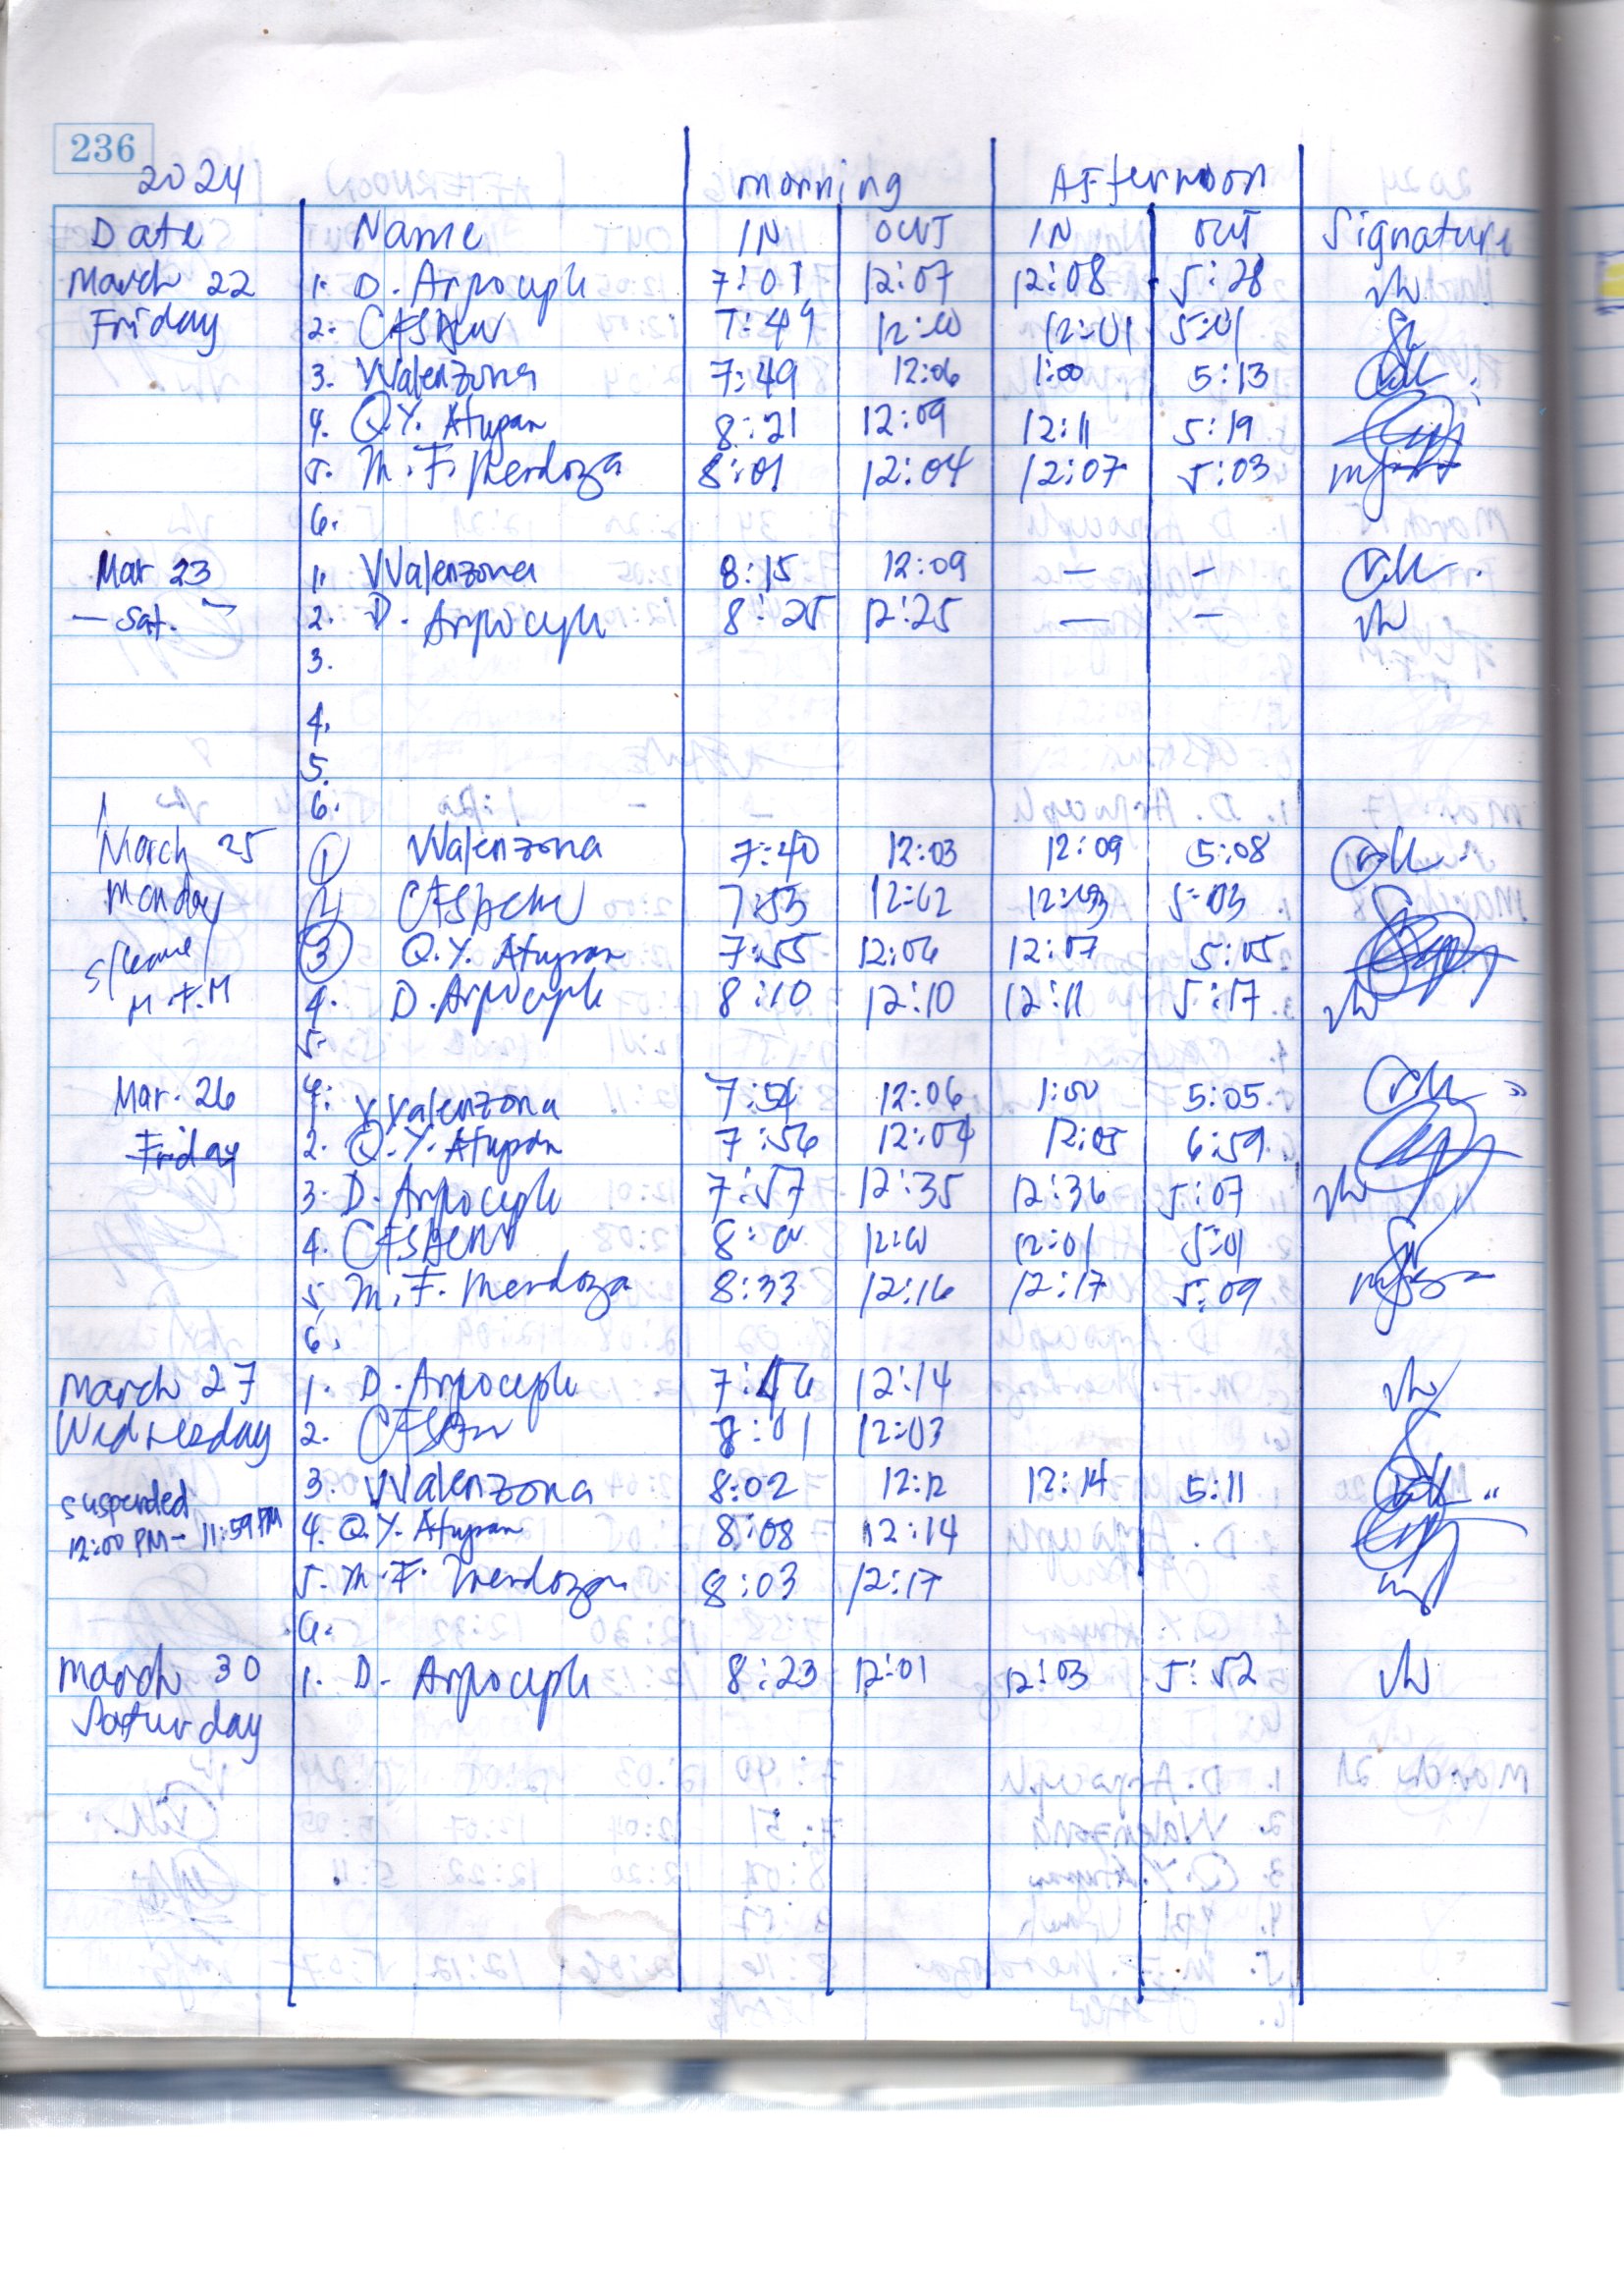 236
2024 morning Afternoon
Date Name IN OUT IN OUT Signature
March 22 1. D. Arpoceple 7:01 12:07 12:08 5:28
Friday 2. 7:49 12:00 12:01 5:01
3. VValenzona 7:49 12:06 1:00 5:13
4. Q.Y. Atupan 8:21 12:09 12:11 5:19
5. M. F. Mendoza 8:01 12:04 12:07 5:03
6.
Mar 23 1. VValenzona 8:15 12:09 — –
— Sat. – 2. D. Arpoceple 8:25 12:25 — –
3.
4.
5.
6.
March 25 1 VValenzona 7:40 12:03 12:09 5:08
Monday 2 7:53 12:02 12:03 5:03
s/leave/ 3 Q.Y. Atupan 7:55 12:06 12:07 5:05
M.F.M 4. D. Arpoceple 8:10 12:10 12:11 5:17
5.
Mar. 26 VValenzona 7:54 12:06 1:00 5:05
Friday 2. Q.Y. Atupan 7:56 12:04 12:05 6:59
3. D. Arpoceple 7:57 12:35 12:36 5:07
4. 8:00 12:00 12:01 5:01
5. M. F. Mendoza 8:33 12:16 12:17 5:09
6.
March 27 1. D. Arpoceple 7:46 12:14
Wednesday 2. 8:01 12:03
3. VValenzona 8:02 12:12 12:14 5:11
suspended
12:00 PM - 11:59 PM 4. Q.Y. Atupan 8:08 12:14
5. M. F. Mendoza 8:03 12:17
6.
March 30 1. D. Arpoceple 8:23 12:01 12:03 5:52
Saturday